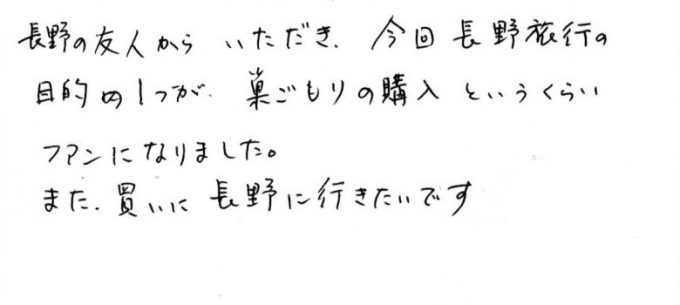 長野の友人から いただき、今回 長野旅行の
目的の1つが、巣ごもりの購入 というくらい
ファンになりました。
また、買いに 長野に行きたいです